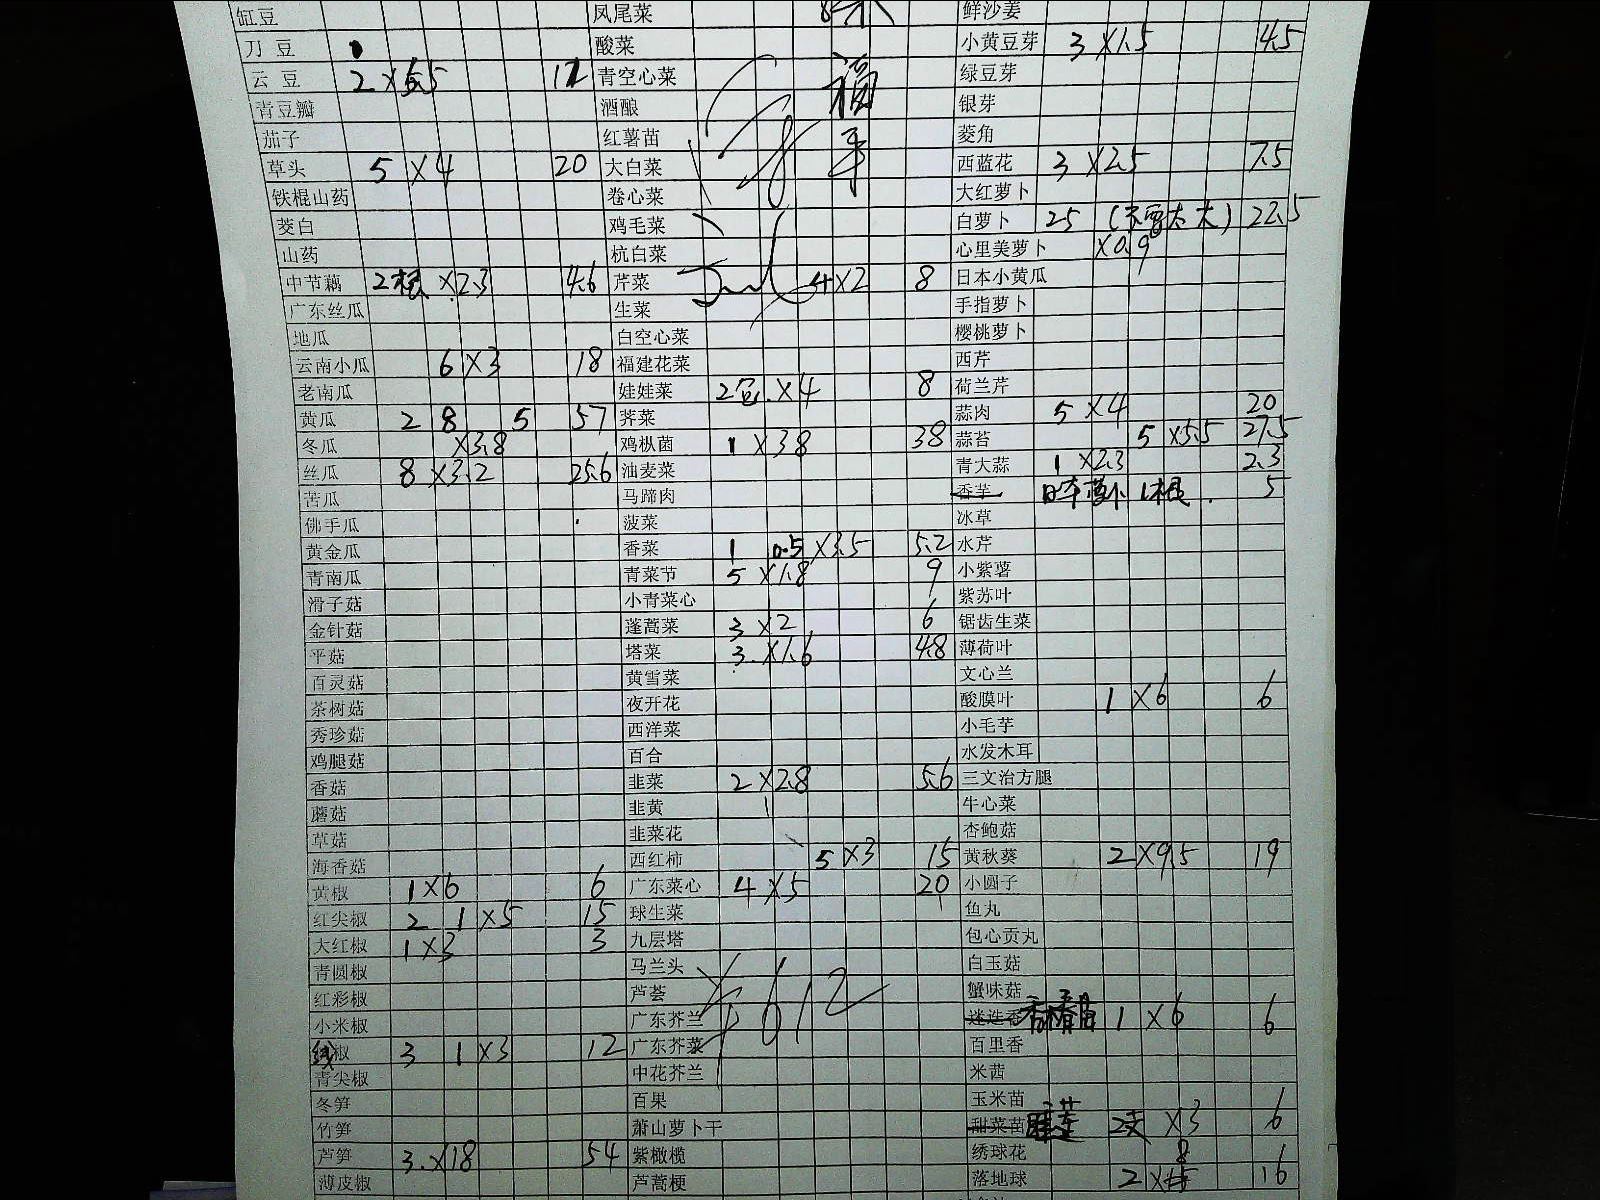 缸豆
刀豆
云豆 2 x 5.5 11
青豆瓣
茄子
草头 5 x 4 20
铁棍山药
茭白
山药
中节藕 2根 x 2.3 4.6
广东丝瓜
地瓜
云南小瓜 6 x 3 18
老南瓜
黄瓜 2 8 5 57
冬瓜 x 3.8
丝瓜 8 x 3.2 25.6
苦瓜
佛手瓜
黄金瓜
青南瓜
滑子菇
金针菇
平菇
百灵菇
茶树菇
秀珍菇
鸡腿菇
香菇
蘑菇
草菇
海香菇
黄椒 1 x 6 6
红尖椒 2 1 x 5 15
大红椒 1 x 3 3
青圆椒
红彩椒
小米椒
线椒 3 1 x 3 12
青尖椒
冬笋
竹笋
芦笋 3. x 18 54
薄皮椒
凤尾菜
酸菜
青空心菜
酒酿
红薯苗
大白菜
卷心菜
鸡毛菜
杭白菜
芹菜 4 x 2 8
生菜
白空心菜
福建花菜
娃娃菜 2包 x 4 8
荠菜
鸡枞菌 1 x 38 38
油麦菜
马蹄肉
菠菜
香菜 1 0.5 x 3.5 5.2
青菜节 5 x 1.8 9
小青菜心
蓬蒿菜 3 x 2 6
塔菜 3. x 1.6 4.8
黄雪菜
夜开花
西洋菜
百合
韭菜 2 x 2.8 5.6
韭黄
韭菜花
西红柿 5 x 3 15
广东菜心 4 x 5 20
球生菜
九层塔
马兰头
芦荟
广东芥兰
广东芥菜
中花芥兰
百果
萧山萝卜干
紫橄榄
芦蒿梗
¥612
鲜沙姜
小黄豆芽 3 x 1.5 4.5
绿豆芽
银芽
菱角
西蓝花 3 x 2.5 7.5
大红萝卜
白萝卜 25 (不要太大) 22.5
心里美萝卜 x 0.9
日本小黄瓜
手指萝卜
樱桃萝卜
西芹
荷兰芹
蒜肉 5 x 4 20
蒜苔 5 x 5.5 27.5
青大蒜 1 x 2.3 2.3
香芋 日本萝卜 1根 5
冰草
水芹
小紫薯
紫苏叶
锯齿生菜
薄荷叶
文心兰
酸膜叶 1 x 6 6
小毛芋
水发木耳
三文治方腿
牛心菜
杏鲍菇
黄秋葵 2 x 9.5 19
小圆子
鱼丸
包心贡丸
白玉菇
蟹味菇
迷迭香 1 x 6 6
百里香
米茜
玉米苗
甜菜苗 睡莲 2支 x 3 6
绣球花 8
落地球 2 x 16